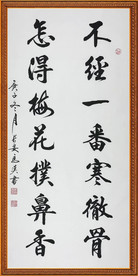 不經一番寒徹骨
怎得梅花撲鼻香
庚子冬月